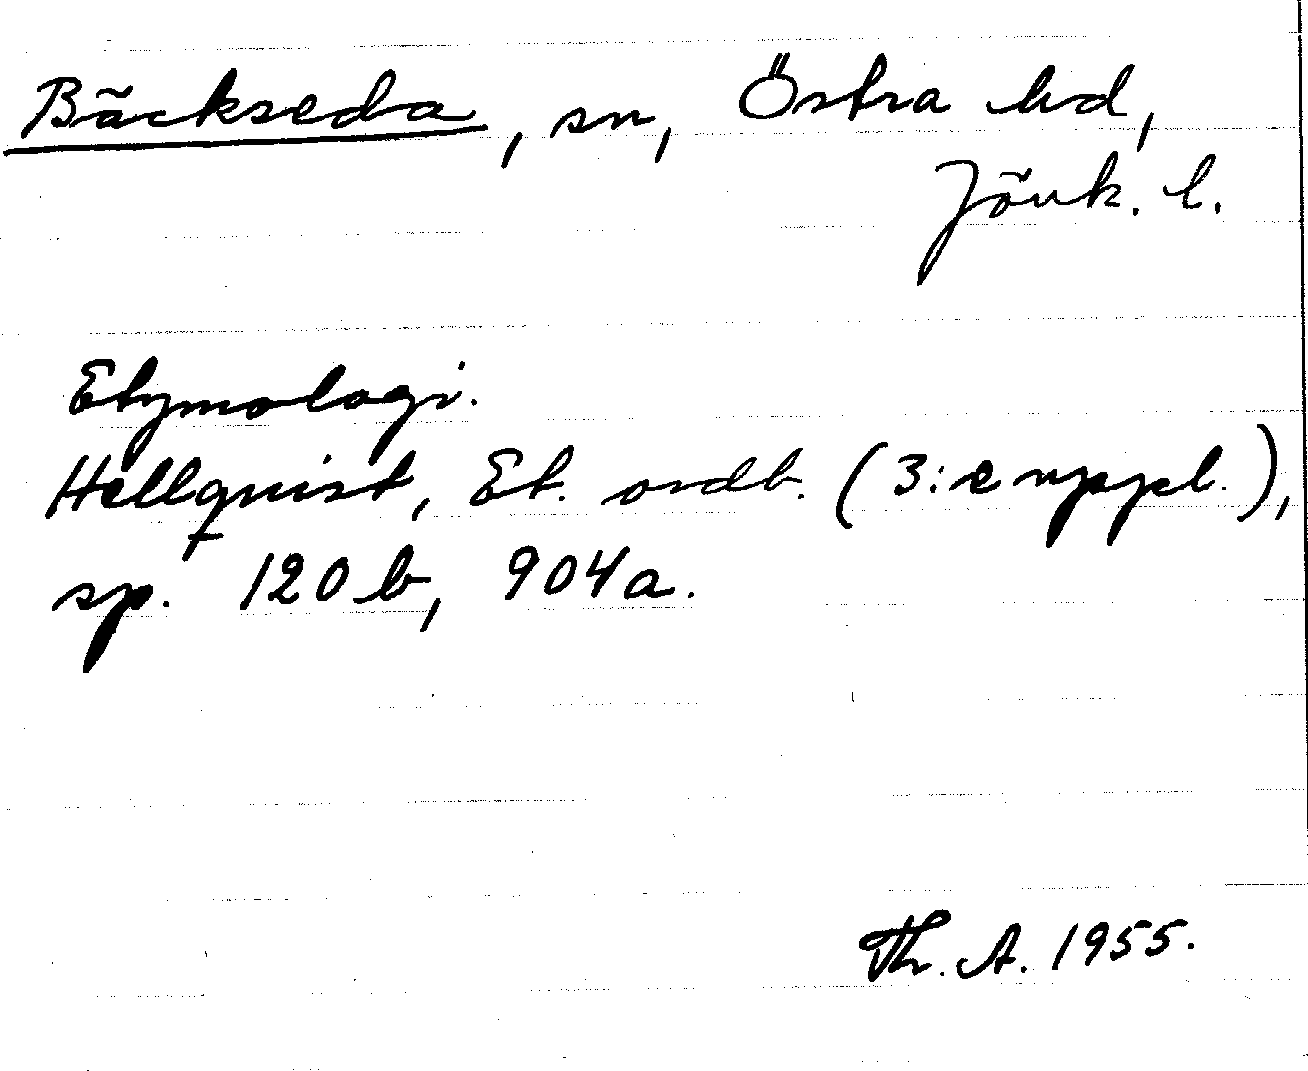 Bäckseda, sn, Östra hd,
Jönk. l.
Etymologi.
Hellquist, Et. ordb. (3:e uppl.),
sp. 120 b, 904a.
Th. A. 1955.